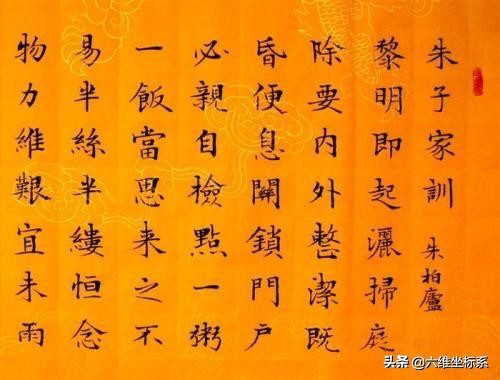 朱子家訓 朱柏廬
黎明即起灑掃庭
除要内外整潔既
昏便息關鎖門户
必親自檢點一粥
一飯當思来之不
易半絲半縷恒念
物力維艱宜未雨
头条 @六维坐标系